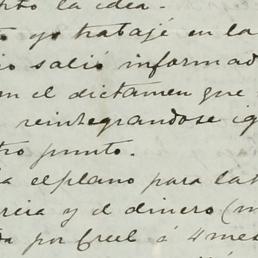 la idea.
yo trabajé en la
salió informad
el dictamen que
reintegrandose ig
punto.
el plano para la
y el dinero (m
por Creel á 4 mes